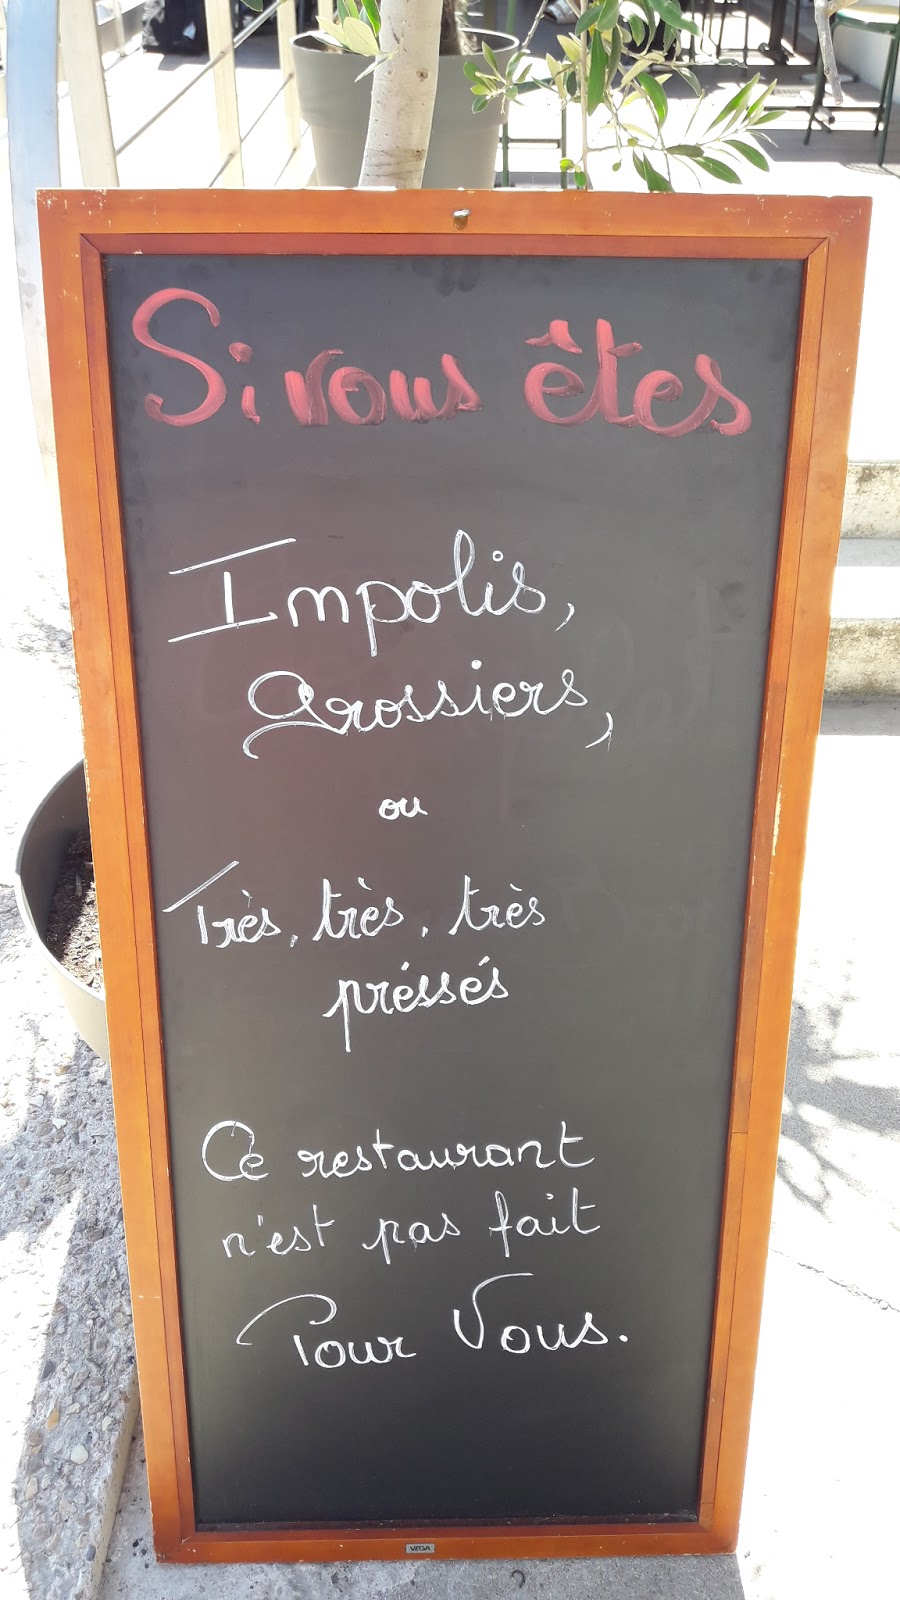 Si vous êtes
Impolis,
Grossiers,
ou
Très, très, très
préssés
Ce restaurant
n'est pas fait
Pour Vous.
VEGA